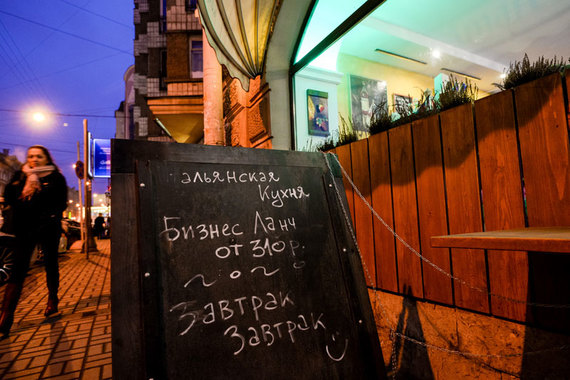 альянская
Кухня
Бизнес Ланч
от 310 р.
Завтрак
Завтрак